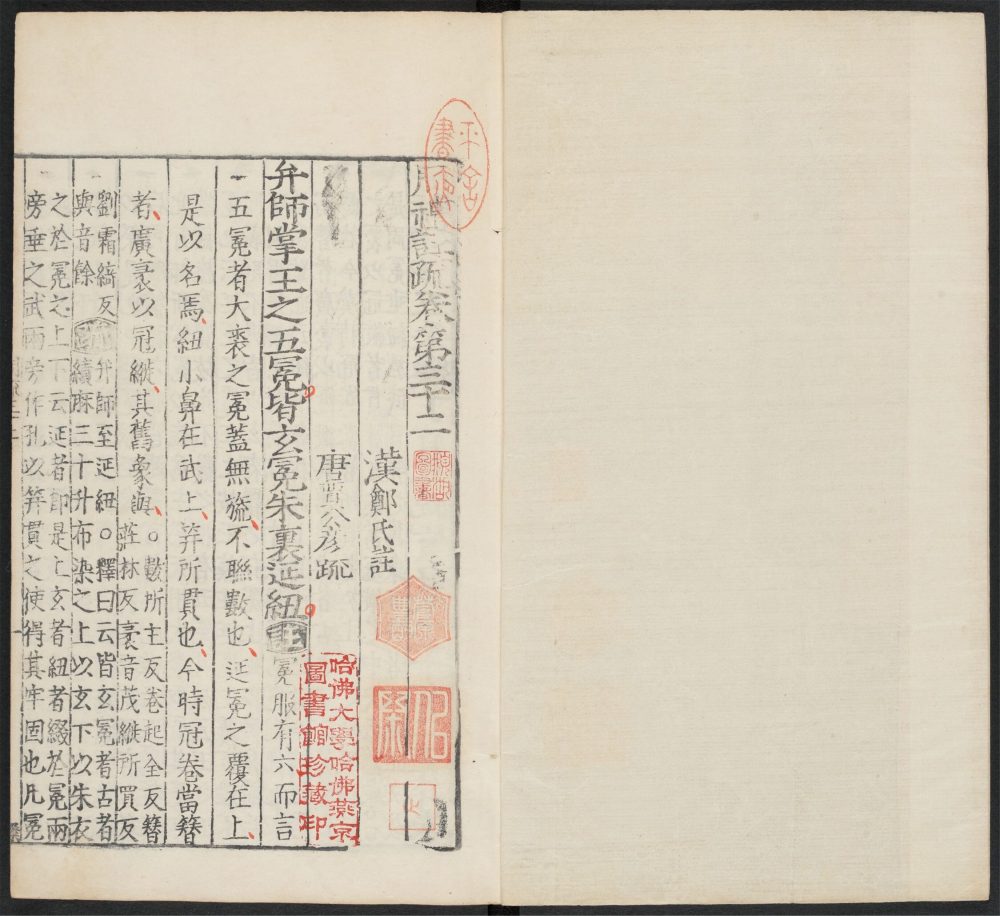 周禮註疏卷第三十二
漢鄭氏註
唐賈公彥疏
弁師掌王之五冕皆玄冕朱裏延紐註冕服有六而言
五冕者大裘之冕蓋無旒不聯數也延冕之覆在上
是以名焉紐小鼻在武上笄所貫也今時冠卷當簪
者廣袤以冠縰其舊象與○數所主反卷起全反簪
莊林反袤音茂縰所買反
劉霜綺反
與音餘
疏弁師至延紐○釋曰云皆玄冕者古者
績麻三十升布染之上以玄下以朱衣
之於冕之上下云延者即是上玄者紐者綴於冕兩
旁垂之武兩旁作孔以笄貫之使得其牢固也凡冕
哈佛大學哈佛燕京
圖書館珍藏印